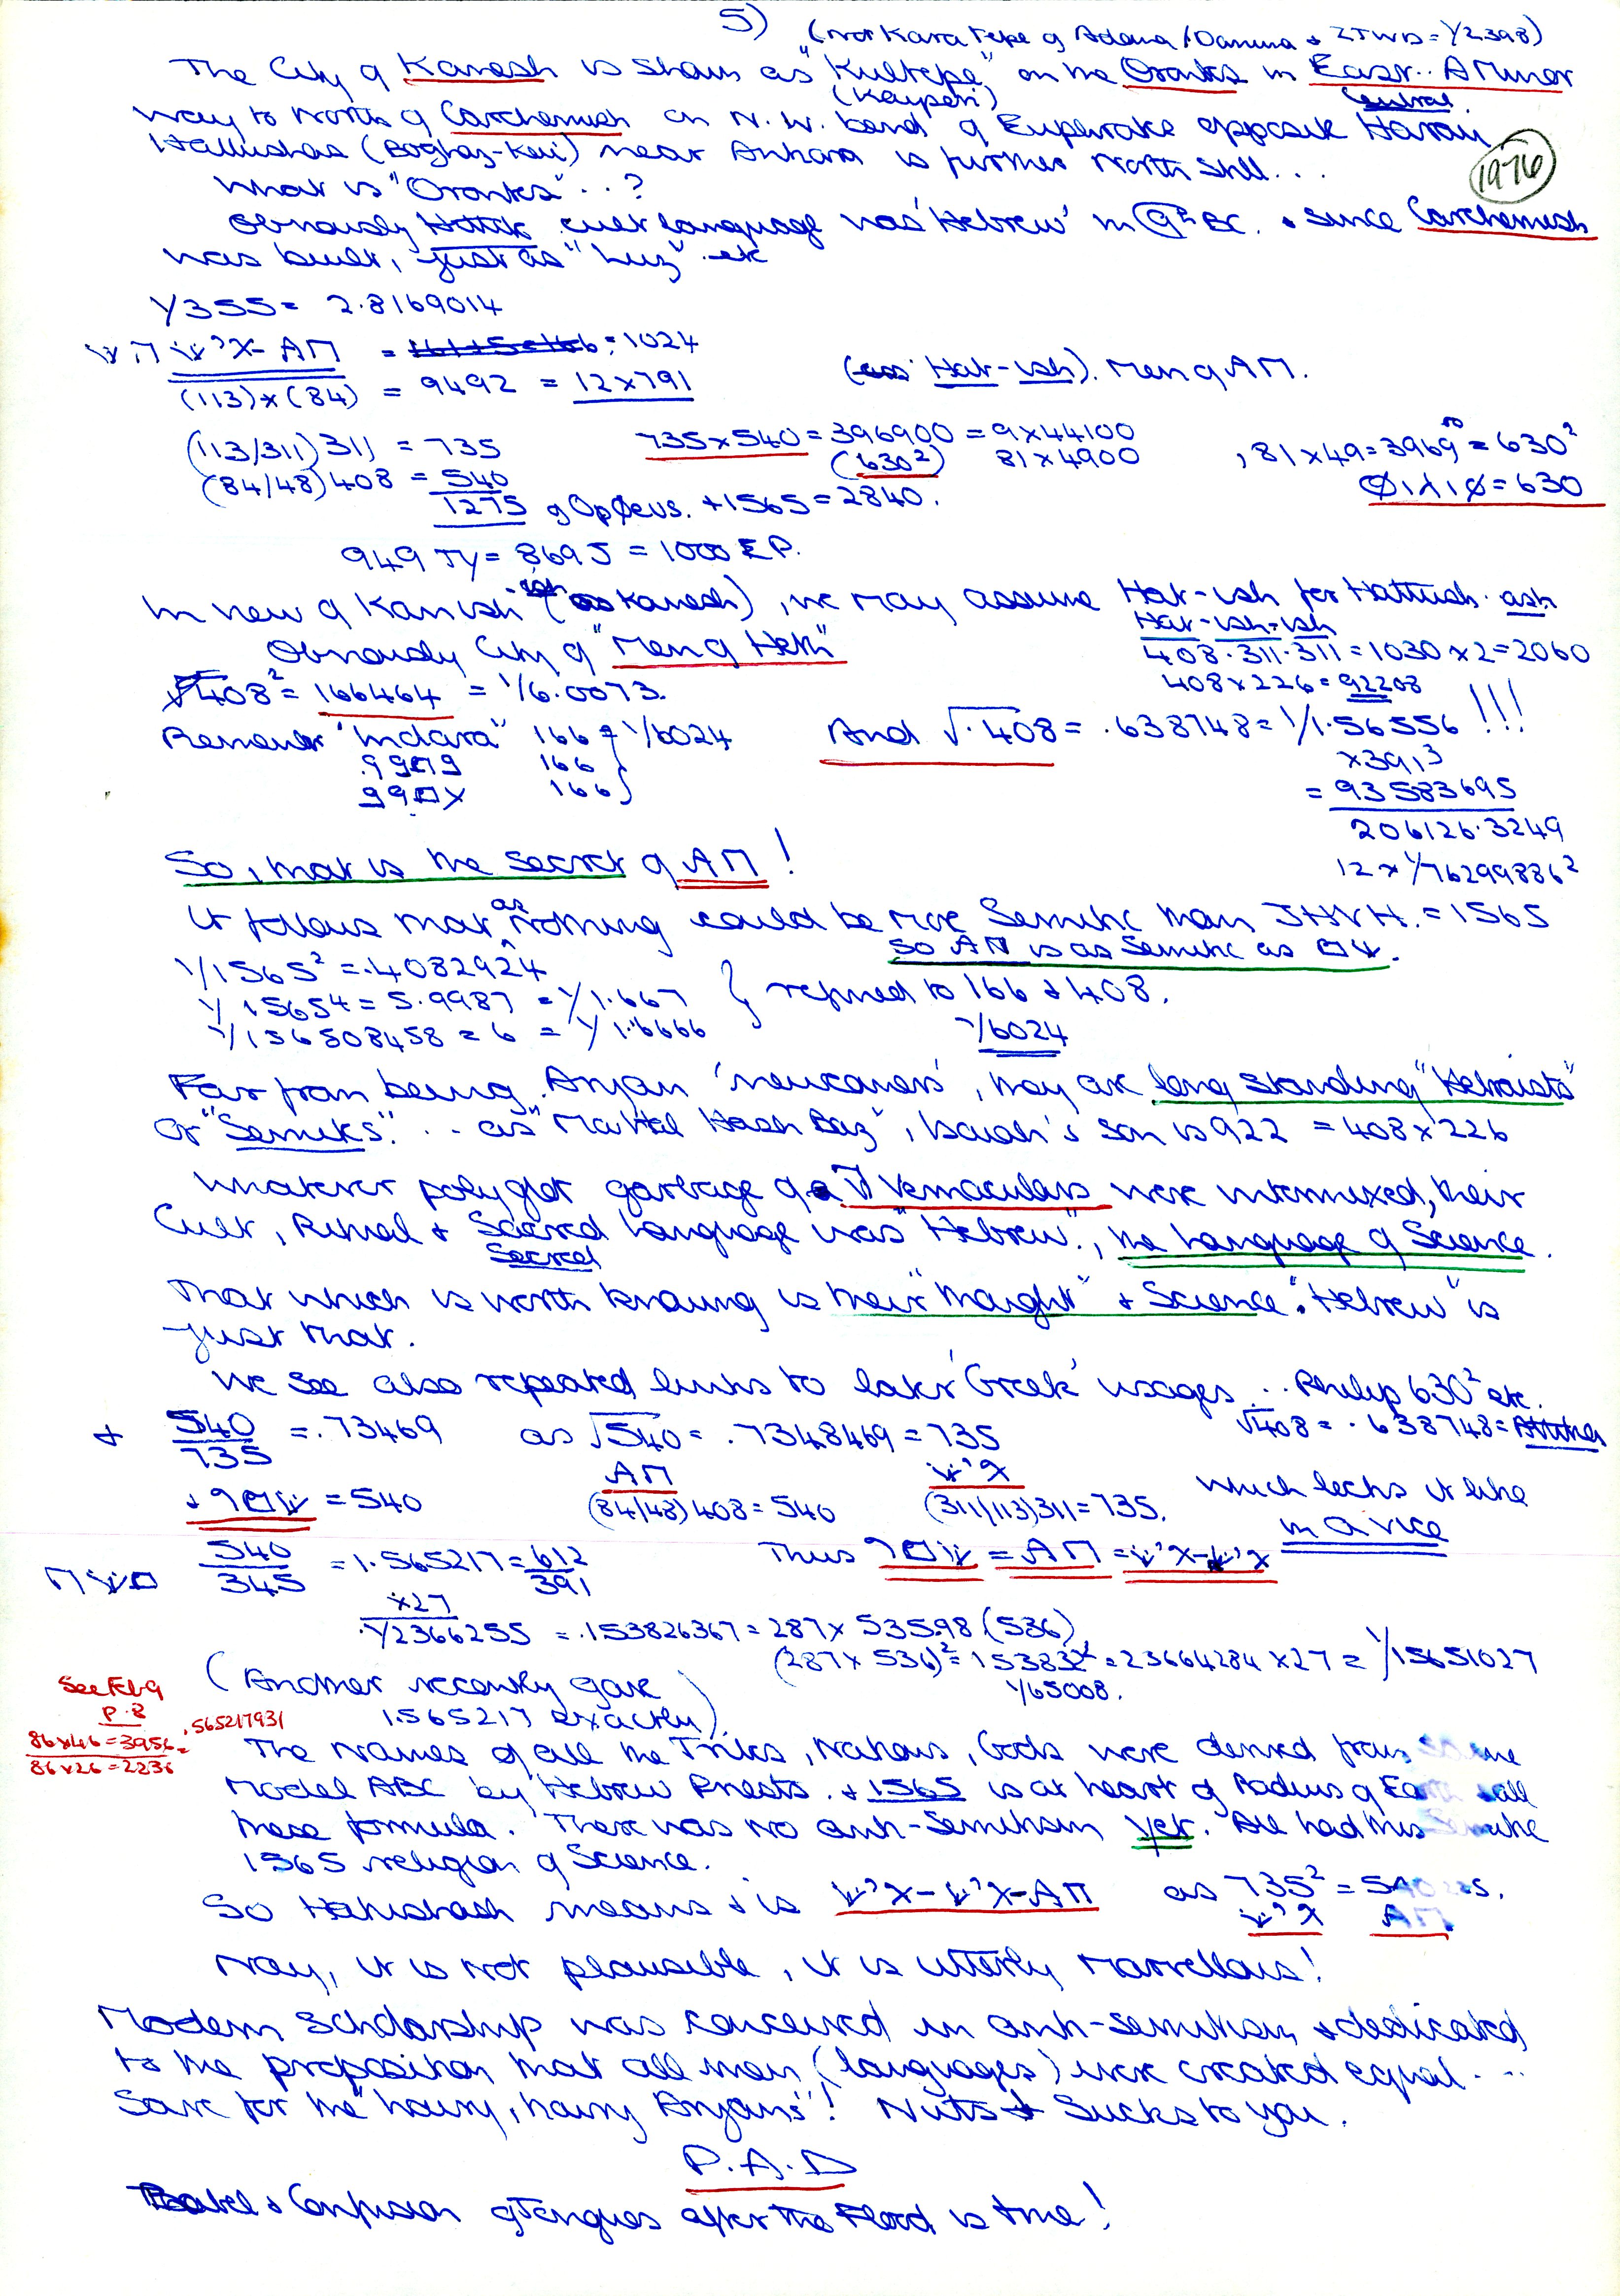 5)
(not Kara Tepe of Adana / Danuna & ZTWD = 1/2398)
The City of Kanesh is shown as "Kultepe" on the Orontes in East.. A Minor
(Kayseri) Central.
way to North of Carchemish on N.W. bend of Euphrates opposite Harran
Hattushas (Boghaz-Keui) near Ankara is further North still...
1976
What is "Orontes"...?
Obviously Hittite cult language was 'Hebrew' in 9th BC. & since Carchemish
was built, just as "Luz" etc
1/355 = 2.8169014
= 1024
(113) x (84) = 9492 = 12 x 791
Hat-ish). Men of
(113/311) 311 = 735
735 x 540 = 396900 = 9 x 44100
, 81 x 49 = 3969 = 630²
(84/48) 408 = 540
(630²) 81 x 4900
Φιλιφ = 630
1275 of Orpheus. + 1565 = 2840.
949 JY = 869 J = 1000 E P.
In view of Kanish (as Kanesh), we may assume Hat-ish for Hattush. ash
Hat-ish-ish
Obviously City of "Men of Heth"
408.311.311 = 1030 x 2 = 2060
408² = 166464 = 1/6.0073.
408 x 226 = 92208
Remember "Indara" 166 = 1/6024
And √.408 = .638748 = 1/1.56556 !!!
166
x 3913
166
= 93583695
206126.3249
12 x 1/76299886²
So, that is the secret of !
It follows that as nothing could be more Semitic than JHVH. = 1565
So is as Semitic as
1/1565² = .4082924
1/15654 = 5.9987 = 1/1.667 } refined to 166 & 408.
1/156508458 = 6 = 1/1.6666
1/6024
Far from being Aryan 'newcomers', they are long standing "Hebraists"
or "Semites"... as "Ma Hal Hash Baz", Isaiah's son is 922 = 408 x 226
Whatever polyglot garbage of vernaculars were intermixed, their
Cult, Ritual & Sacred Language was "Hebrew", the Language of Science.
Secred
That which is worth knowing is their "thought" & Science. "Hebrew" is
just that.
We see also repeated links to later 'Greek' usages... Philip 630² etc.
& 540/735 = .73469 as √540 = .7348469 = 735
√408 = .638748 =
= 540
(84/48) 408 = 540
(311/113) 311 = 735.
which locks it like
in a vice
540/345 = 1.565217 = 612/391
Thus
x 27
1/2366255 = .153826367 = 287 x 53598 (536)
(287 x 536)² = 153832² = 23664284 x 27 = 1/15651027
1/65008.
(Another recently gave
1.565217 exactly).
See Feb 9
P.8
86x46 = 3956 = .565217931
86x26 = 2236
The Names of all the Tribes, Nations, Gods were derived from same
Model ABC by "Hebrew" Priests. & 1565 is at heart of Radius of Earth & all
these formula. There was no anti-Semitism yet. All had this
1565 religion of Science.
So Hattushash means & is as 735² = 540225.
Nay, it is not plausible, it is utterly marvellous!
Modern scholarship was conceived in anti-semitism, & dedicated,
to the proposition that all men (languages) were created equal...
Save for the "hairy, hairy Aryans"! Nuts & Sucks to you.
P.A.D
Babel & Confusion of Tongues after the Flood is true!